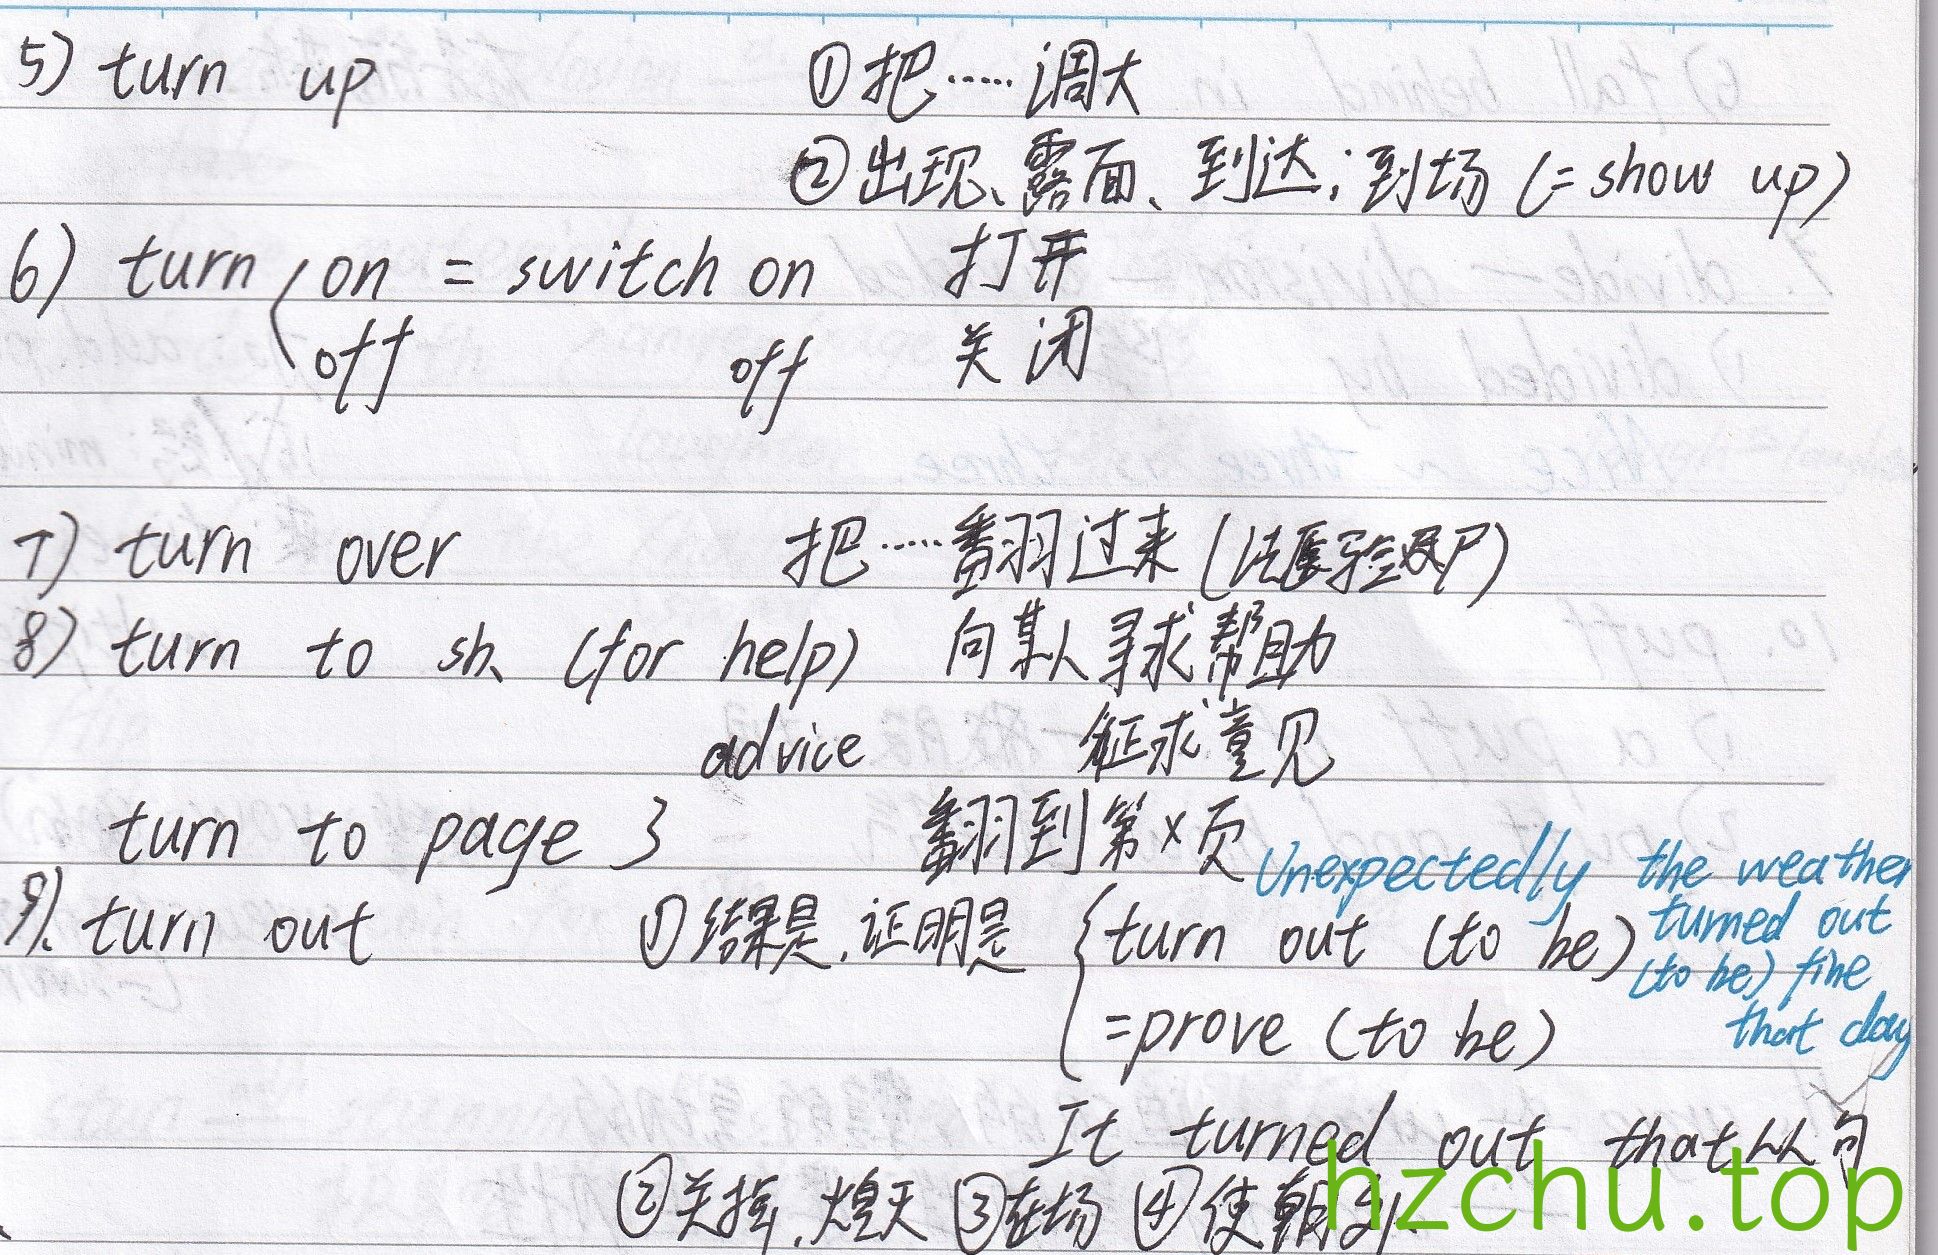 5) turn up ①把……调大
②出现、露面、到达;到场 (=show up)
6) turn on = switch on 打开
off off 关闭
7) turn over 把……翻过来
8) turn to sb. (for help) 向某人寻求帮助
advice 征求意见
turn to page 3 翻到第x页
9). turn out ①结果是,证明是 turn out (to be)
=prove (to be)
Unexpectedly the weather
turned out
(to be) fine
that day
It turned out that从句
②关掉,熄灭 ③在场 ④使朝外
hzchu.top